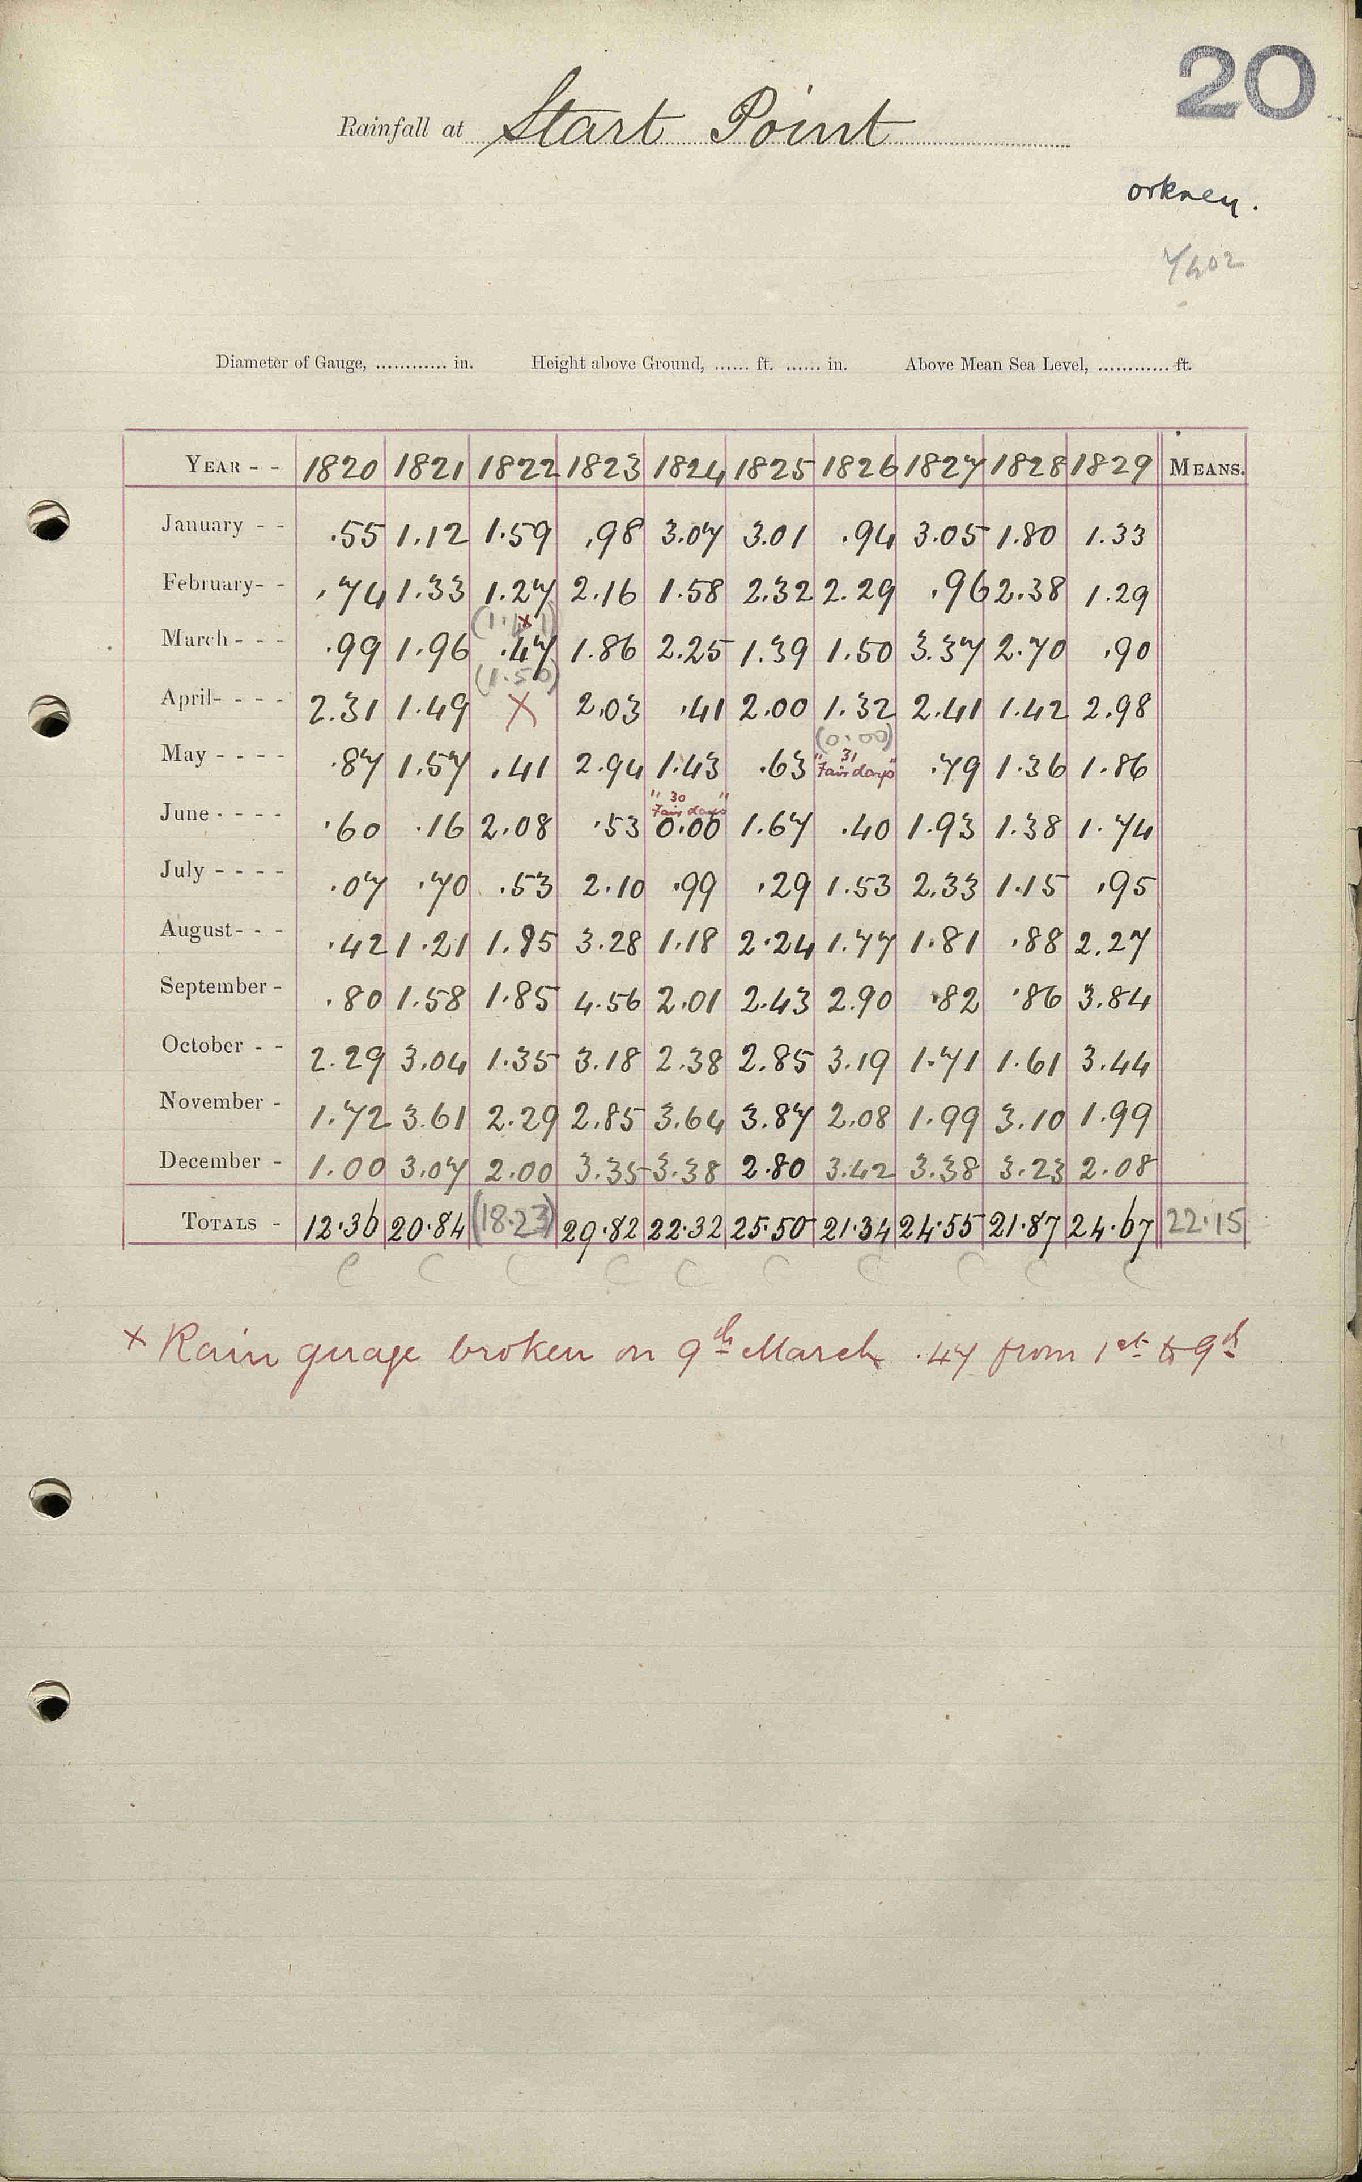 20
Rainfall at Start Point
Orkney.
Diameter of Gauge, ............ in. Height above Ground, ...... ft. ...... in. Above Mean Sea Level, ............ ft.
YEAR - - 1820 1821 1822 1823 1824 1825 1826 1827 1828 1829 MEANS.
January - - .55 1.12 1.59 .98 3.07 3.01 .94 3.05 1.80 1.33
February- - .74 1.33 1.27 2.16 1.58 2.32 2.29 .96 2.38 1.29
x
March - - - .99 1.96 .47 1.86 2.25 1.39 1.50 3.37 2.70 .90
(1.50)
April- - - - 2.31 1.49 X 2.03 .41 2.00 1.32 2.41 1.42 2.98
(0.00)
May - - - - .87 1.57 .41 2.94 1.43 .63 "31 Fair days" .79 1.36 1.86
"30 Fair days"
June - - - - .60 .16 2.08 .53 0.00 1.67 .40 1.93 1.38 1.74
July - - - - .07 .70 .53 2.10 .99 .29 1.53 2.33 1.15 .95
August- - - .42 1.21 1.85 3.28 1.18 2.24 1.77 1.81 .88 2.27
September - .80 1.58 1.85 4.56 2.01 2.43 2.90 .82 .86 3.84
October - - 2.29 3.04 1.35 3.18 2.38 2.85 3.19 1.71 1.61 3.44
November - 1.72 3.61 2.29 2.85 3.64 3.87 2.08 1.99 3.10 1.99
December - 1.00 3.07 2.00 3.35 3.38 2.80 3.42 3.38 3.23 2.08
TOTALS - 12.36 20.84 (18.23) 29.82 22.32 25.50 21.34 24.55 21.87 24.67 22.15
C C C C C C C C C C
x Rain guage broken on 9th March .47 from 1st to 9th